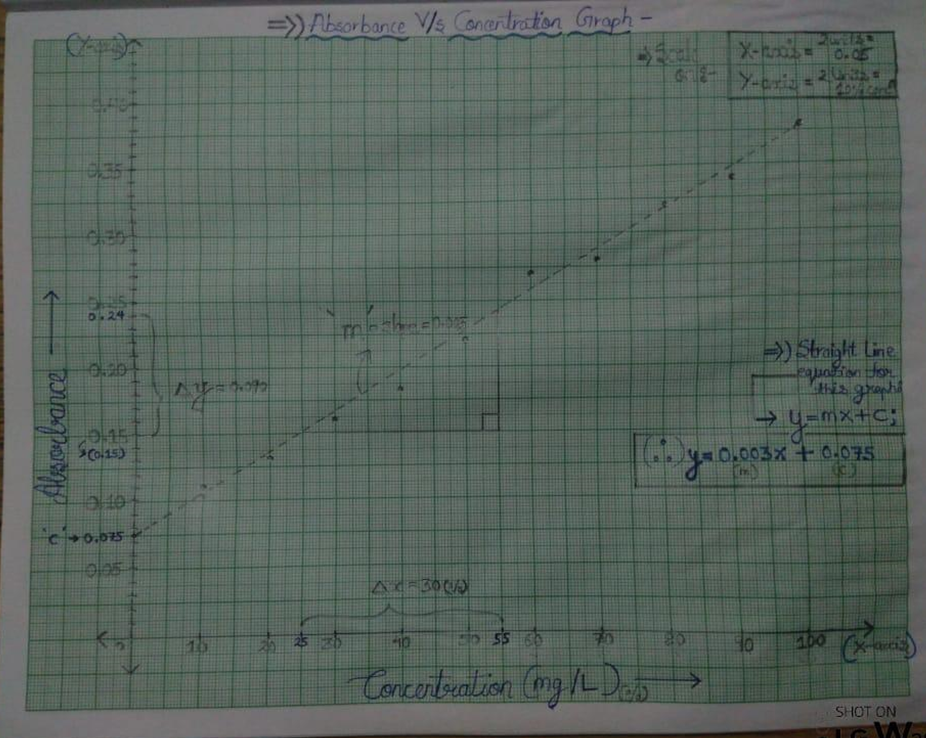 ⇒⟩ Absorbance V/s Concentration Graph -
(Y-axis)
X-axis = 2 units = 0.05
Y-axis = 2 Units =
0.40
0.35
0.30
0.25
0.24
0.20
Δy = 0.090
0.15
(0.15)
0.10
'c' → 0.075
0.05
Absorbance
'm'
⇒⟩ Straight Line
equation for
this graph
→ y=mx+c;
(∴) y= 0.003x + 0.075
(m) (c)
Δx = 30
0 10 20 25 30 40 50 55 60 70 80 90 100 (x-axis)
Concentration (mg/L)
SHOT ON